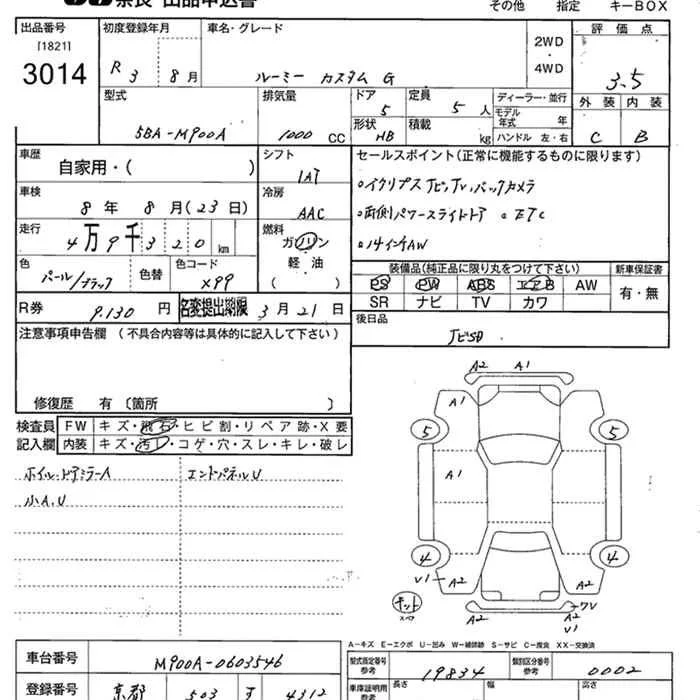 奈良 出品申込書
その他 指定 キーBOX
出品番号
[1821]
3014
初度登録年月
R 3 8月
車名・グレード
ルーミー カスタム G
2WD
・
4WD
評価点
3.5
外装 内装
C B
型式
5BA-M900A
排気量
1000 CC
ドア
5
定員
5 人
形状
HB
積載
kg
ディーラー・並行
モデル年式 年
ハンドル 左・右
車歴
自家用・( )
シフト
IAT
車検
8年 8月(23日)
冷房
AAC
走行
4万9千320 km
燃料
ガソリン
軽油
( )
色
パール/ブラック
色替
色コード
X99
R券
9.130 円
名変提出期限 3月21日
セールスポイント(正常に機能するものに限ります)
○イクリプスナビ,TV,バックカメラ
○両側パワースライドドア ○ETC
○14インチAW
装備品(純正品に限り丸をつけて下さい)
PS PW ABS エアB AW
SR ナビ TV カワ
新車保証書
有・無
後日品
ナビSD
注意事項申告欄(不具合内容等は具体的に記入して下さい)
修復歴 有〔箇所 〕
検査員
記入欄
FW キズ・飛石・ヒビ割・リペア跡・X要
内装 キズ・汚レ・コゲ・穴・スレ・キレ・破レ
ホイル・ドアミラーA
小A.U
エンドパネルU
A2 A1
A1
5 5
A1
4 4
V1 A2 A2
キット
スペア
A2 A2 V1
A-キズ E-エクボ U-凹み W-補修跡 S-サビ C-腐食 XX-交換済
車台番号
M900A-0603546
登録番号
京都 503 4312
型式指定番号
参考
19834
類別区分番号
参考
0002
車庫証明用
参考
長さ 幅 高さ